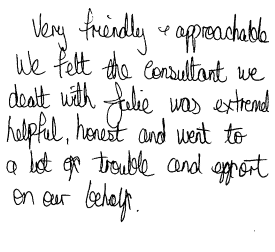 Very friendly & approachable
We felt the consultant we
dealt with Julie was extrem
helpful, honest and went to
a lot of trouble and effort
on our behalf.